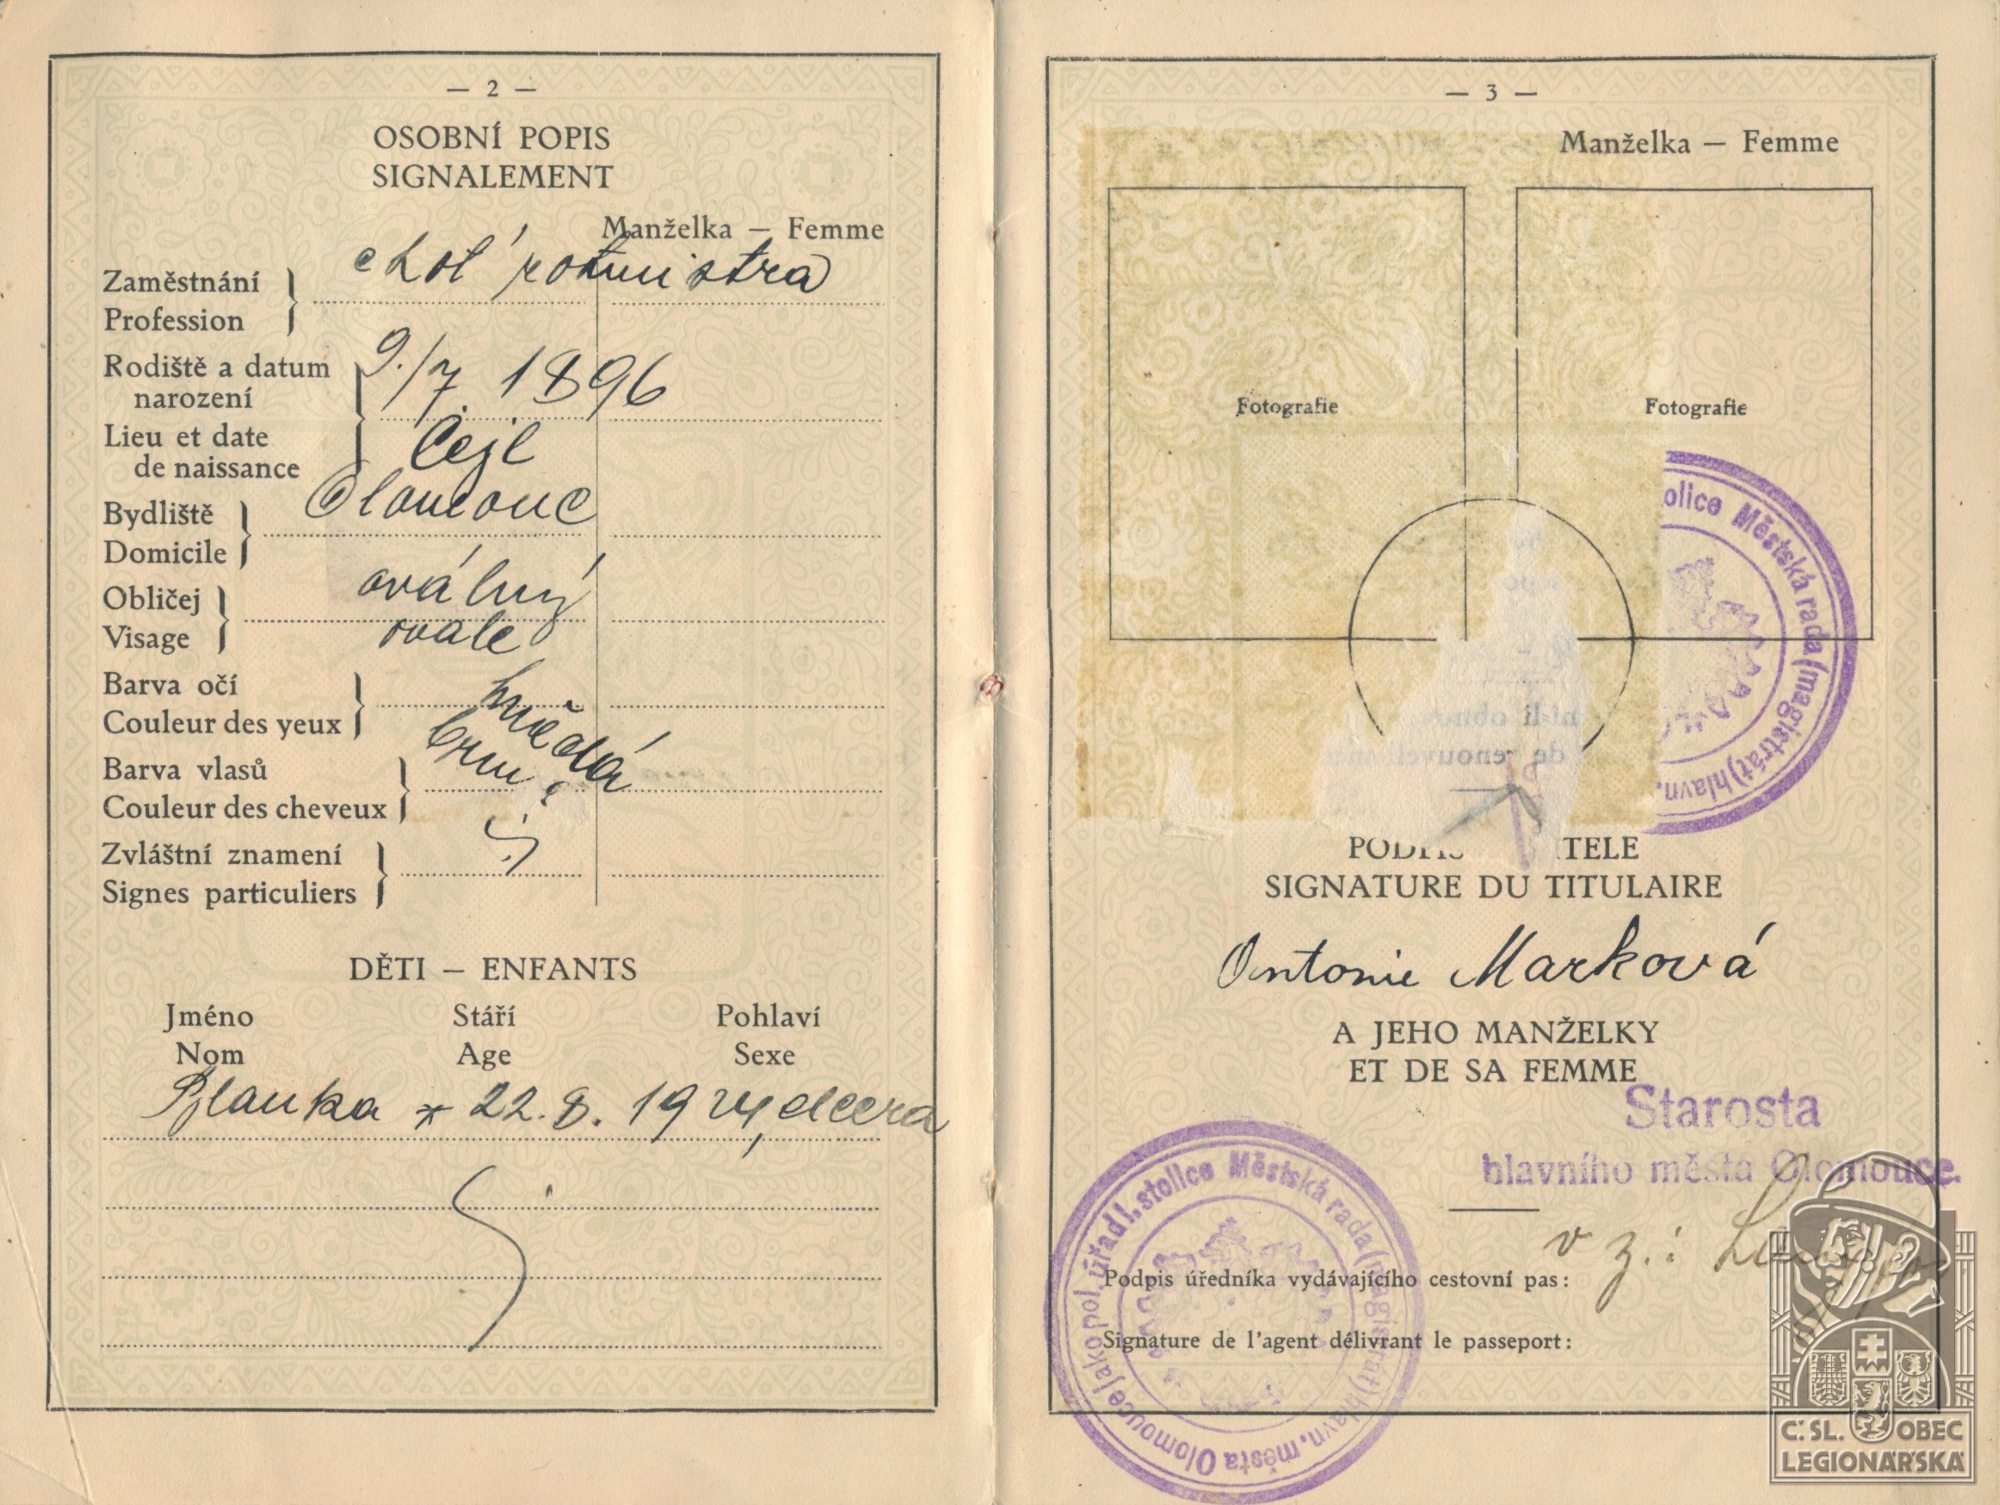 — 2 —
OSOBNÍ POPIS
SIGNALEMENT
Manželka — Femme
Zaměstnání
choť rotmistra
Profession
Rodiště a datum
narození
9./7. 1896
Lieu et date
de naissance
Čejl
Bydliště
Olomouc
Domicile
Obličej
oválný
Visage
ovale
Barva očí
hnědá
Couleur des yeux
Barva vlasů
Couleur des cheveux
Zvláštní znamení
Signes particuliers
DĚTI — ENFANTS
Jméno Stáří Pohlaví
Nom Age Sexe
Blanka * 22. 8. 1924, dcera
— 3 —
Manželka — Femme
Fotografie Fotografie
olice Městská rada (magistrát) hlavn.
TELE
SIGNATURE DU TITULAIRE
Antonie Marková
A JEHO MANŽELKY
ET DE SA FEMME
Starosta
hlavního města Olomouce.
v z.:
Podpis úředníka vydávajícího cestovní pas:
Signature de l'agent délivrant le passeport:
jako pol. úřad I. stolice Městská rada (magistrát) hlavn. města Olomouce
Č.SL. OBEC
LEGIONÁŘSKÁ